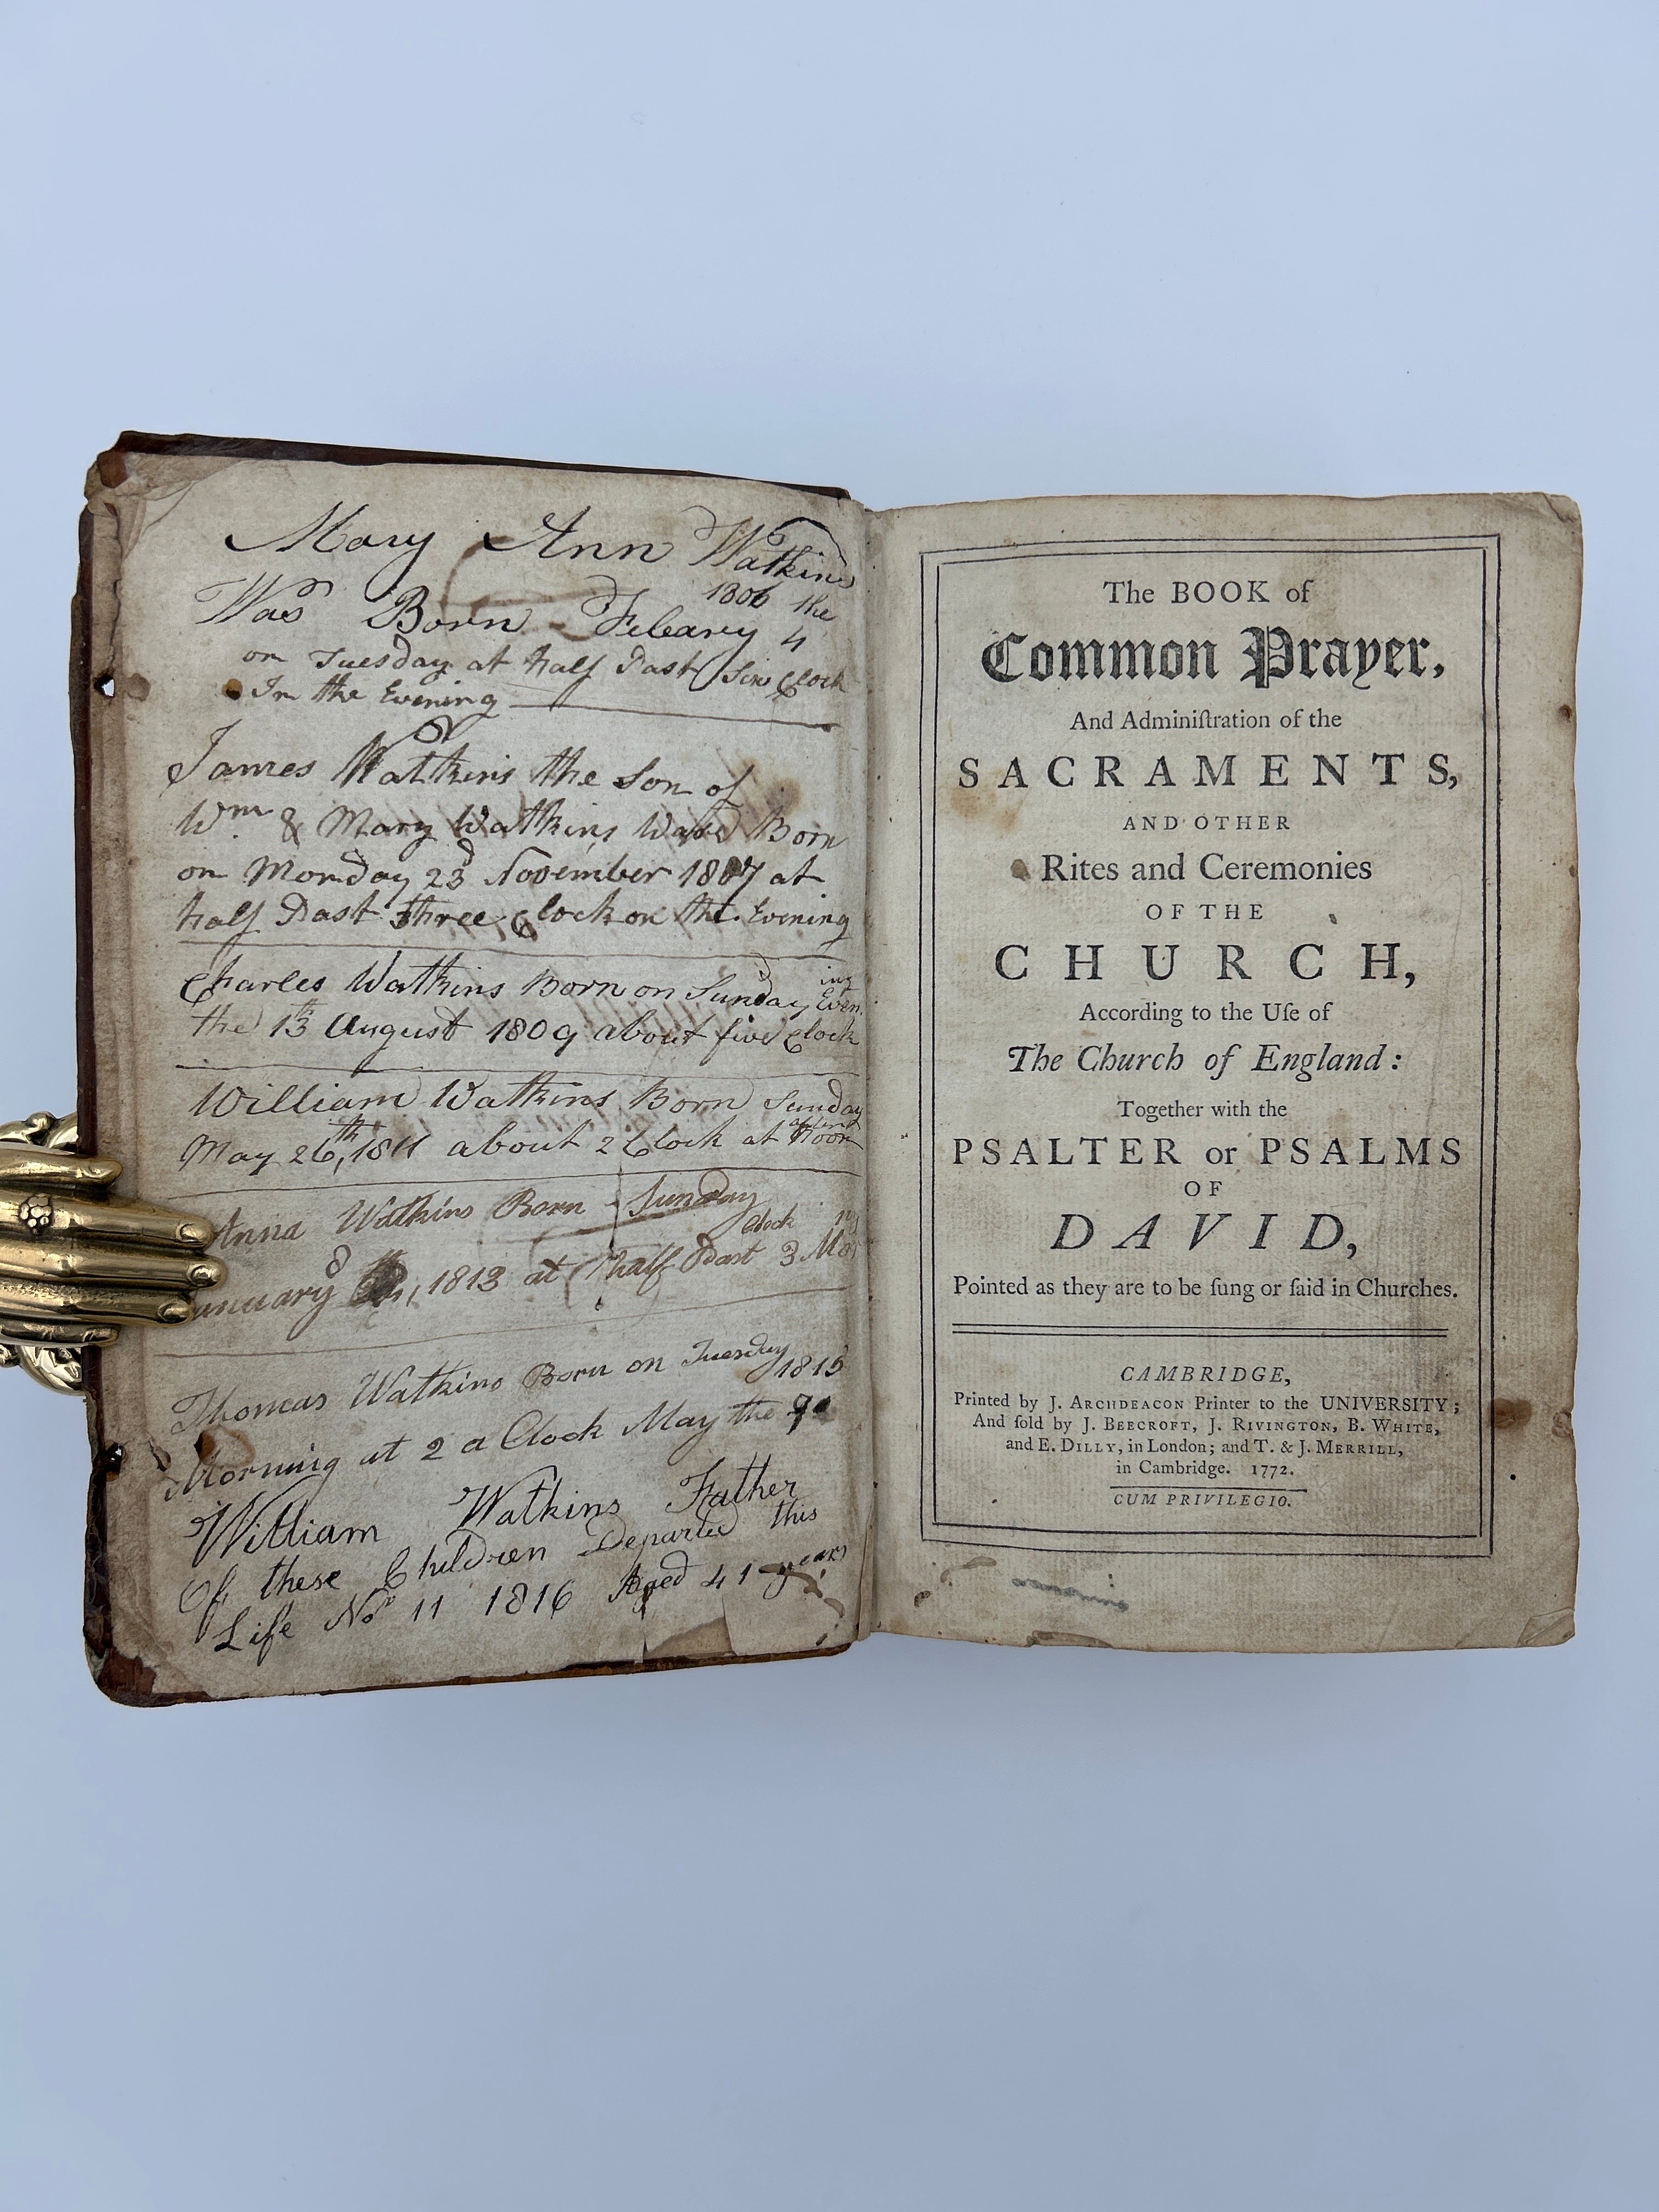 Mary Ann Watkins
Was Born Febeary 1806 the 4
on Tuesday at half Past Six Clock
In the Evening
James Watkins the Son of
Wm & Mary Watkins Was Born
on Monday 23d November 1807 at
half Past three Clock on the Evening
Charles Watkins Born on Sunday Evening
the 13th August 1809 about five Clock
William Watkins Born Sunday
May 26th, 1811 about 2 Clock at Noon
Anna Watkins Born Sunday
January 8th, 1813 at half Past 3 Clock
Thomas Watkins Born on Tuesday 1815
Morning at 2 a Clock May the 9
William Watkins Father
Of these Children Departed this
Life Nov 11 1816 Aged 41 years
The BOOK of
Common Prayer,
And Adminiſtration of the
SACRAMENTS,
AND OTHER
Rites and Ceremonies
OF THE
CHURCH,
According to the Uſe of
The Church of England:
Together with the
PSALTER or PSALMS
OF
DAVID,
Pointed as they are to be ſung or ſaid in Churches.
CAMBRIDGE,
Printed by J. ARCHDEACON Printer to the UNIVERSITY;
And ſold by J. BEECROFT, J. RIVINGTON, B. WHITE,
and E. DILLY, in London; and T. & J. MERRILL,
in Cambridge. 1772.
CUM PRIVILEGIO.